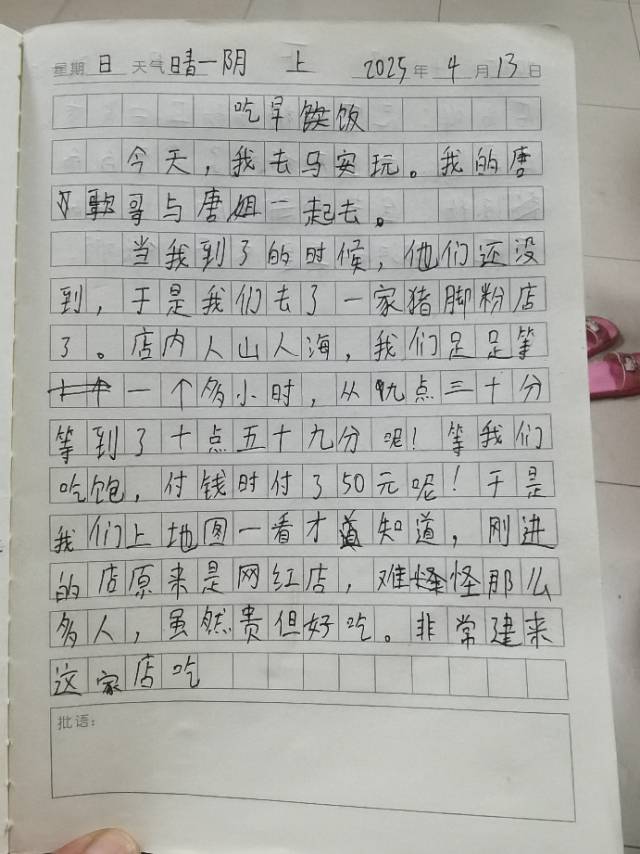 星期 日 天气 晴一阴 上 2025年 4月 13日
吃早饭
今天，我去马安玩。我的唐
哥与唐姐一起去。
当我到了的时候，他们还没
到，于是我们去了一家猪脚粉店
了。店内人山人海，我们足足等
一个多小时，从九点三十分
等到了十点五十九分呢！等我们
吃饱，付钱时付了50元呢！于是
我们上地图一看才知道，刚进
的店原来是网红店，难怪那么
多人，虽然贵但好吃。非常建来
这家店吃
批语：